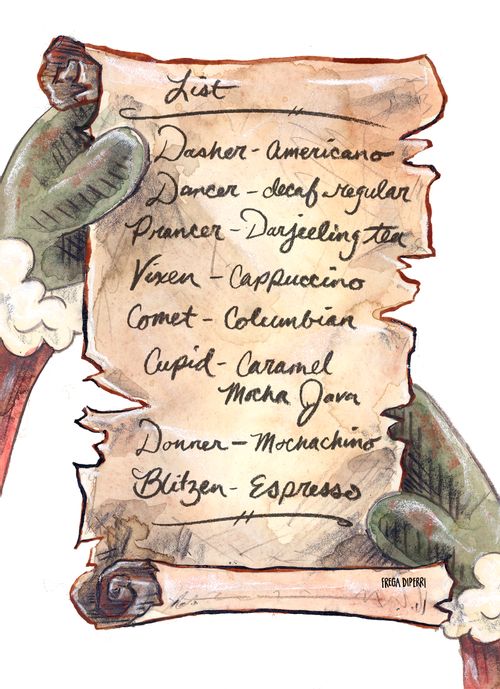 List
Dasher - Americano
Dancer - decaf regular
Prancer - Darjeeling tea
Vixen - Cappuccino
Comet - Columbian
Cupid - Caramel
Mocha Java
Donner - Mochachino
Blitzen - Espresso
FREGA DIPERRI